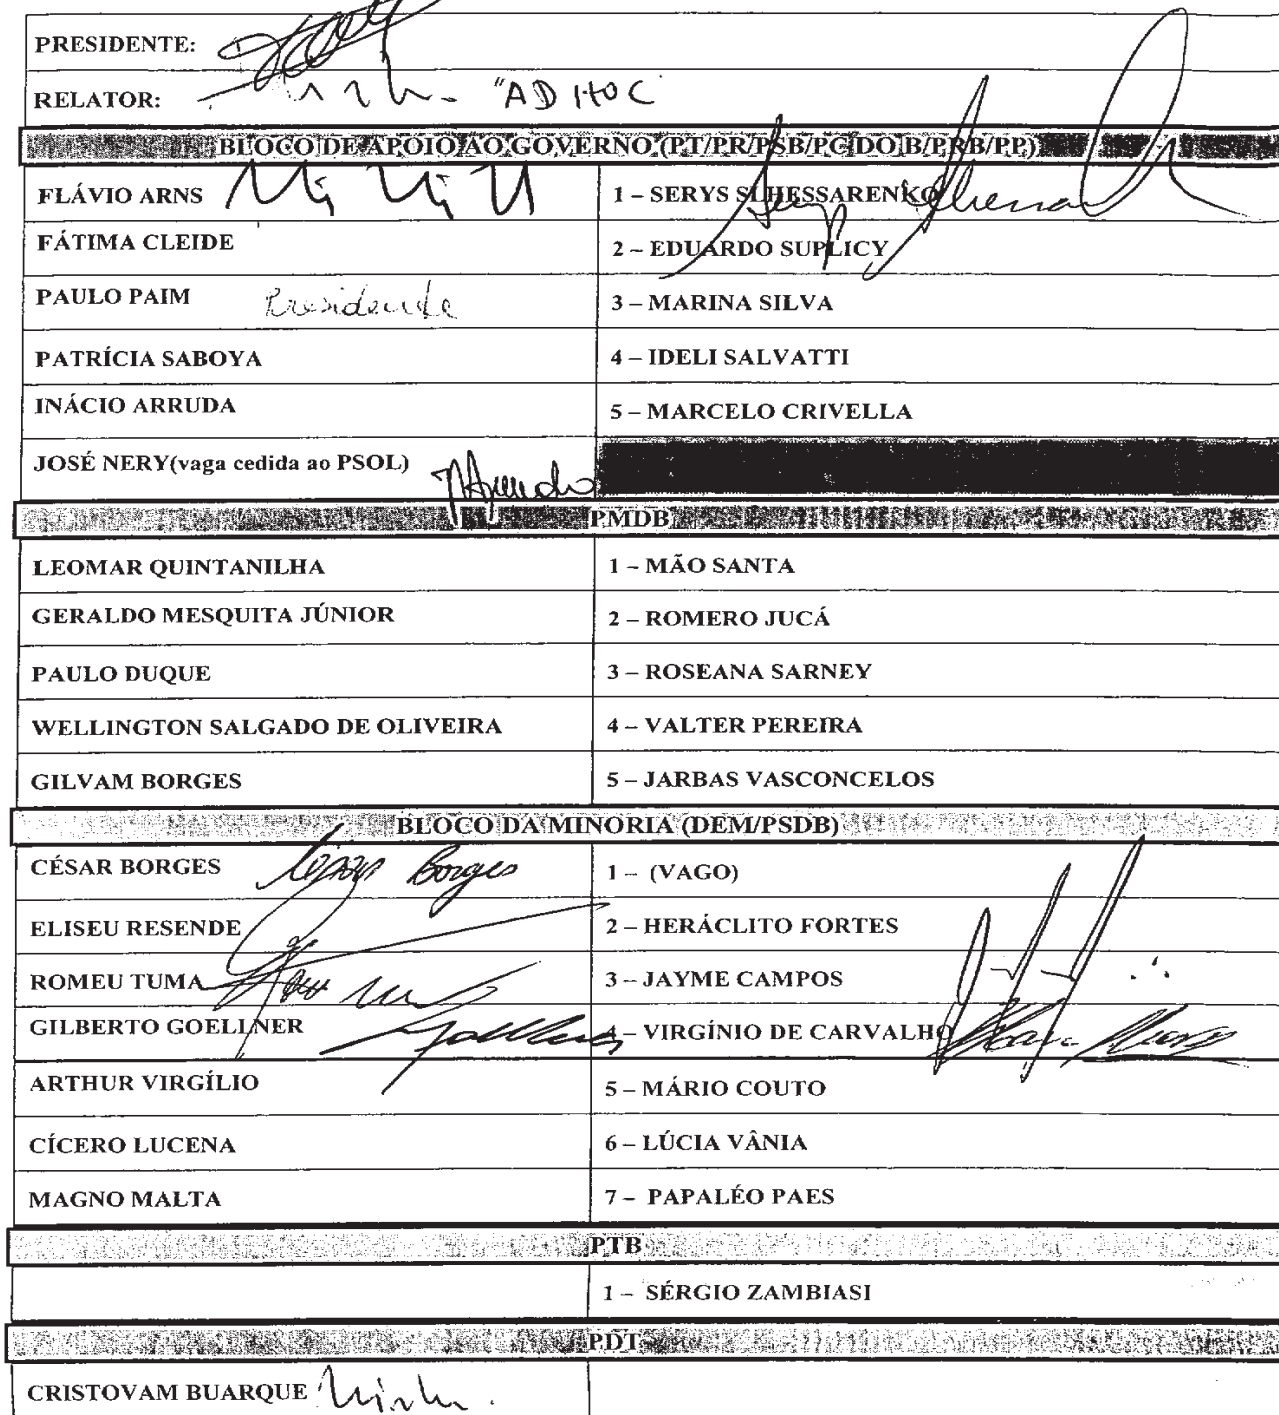 PRESIDENTE:
RELATOR: "AD HOC
BLOCO DE APOIO AO GOVERNO (PT/PR/PSB/PC DO B/PRB/PP)
FLÁVIO ARNS
1 – SERYS SLHESSARENKO
FÁTIMA CLEIDE
2 – EDUARDO SUPLICY
PAULO PAIM Presidente
3 – MARINA SILVA
PATRÍCIA SABOYA
4 – IDELI SALVATTI
INÁCIO ARRUDA
5 – MARCELO CRIVELLA
JOSÉ NERY(vaga cedida ao PSOL)
PMDB
LEOMAR QUINTANILHA
1 – MÃO SANTA
GERALDO MESQUITA JÚNIOR
2 – ROMERO JUCÁ
PAULO DUQUE
3 – ROSEANA SARNEY
WELLINGTON SALGADO DE OLIVEIRA
4 – VALTER PEREIRA
GILVAM BORGES
5 – JARBAS VASCONCELOS
BLOCO DA MINORIA (DEM/PSDB)
CÉSAR BORGES César Borges
1 – (VAGO)
ELISEU RESENDE
2 – HERÁCLITO FORTES
ROMEU TUMA
3 – JAYME CAMPOS
GILBERTO GOELLNER
4 – VIRGÍNIO DE CARVALHO
ARTHUR VIRGÍLIO
5 – MÁRIO COUTO
CÍCERO LUCENA
6 – LÚCIA VÂNIA
MAGNO MALTA
7 – PAPALÉO PAES
PTB
1 – SÉRGIO ZAMBIASI
PDT
CRISTOVAM BUARQUE